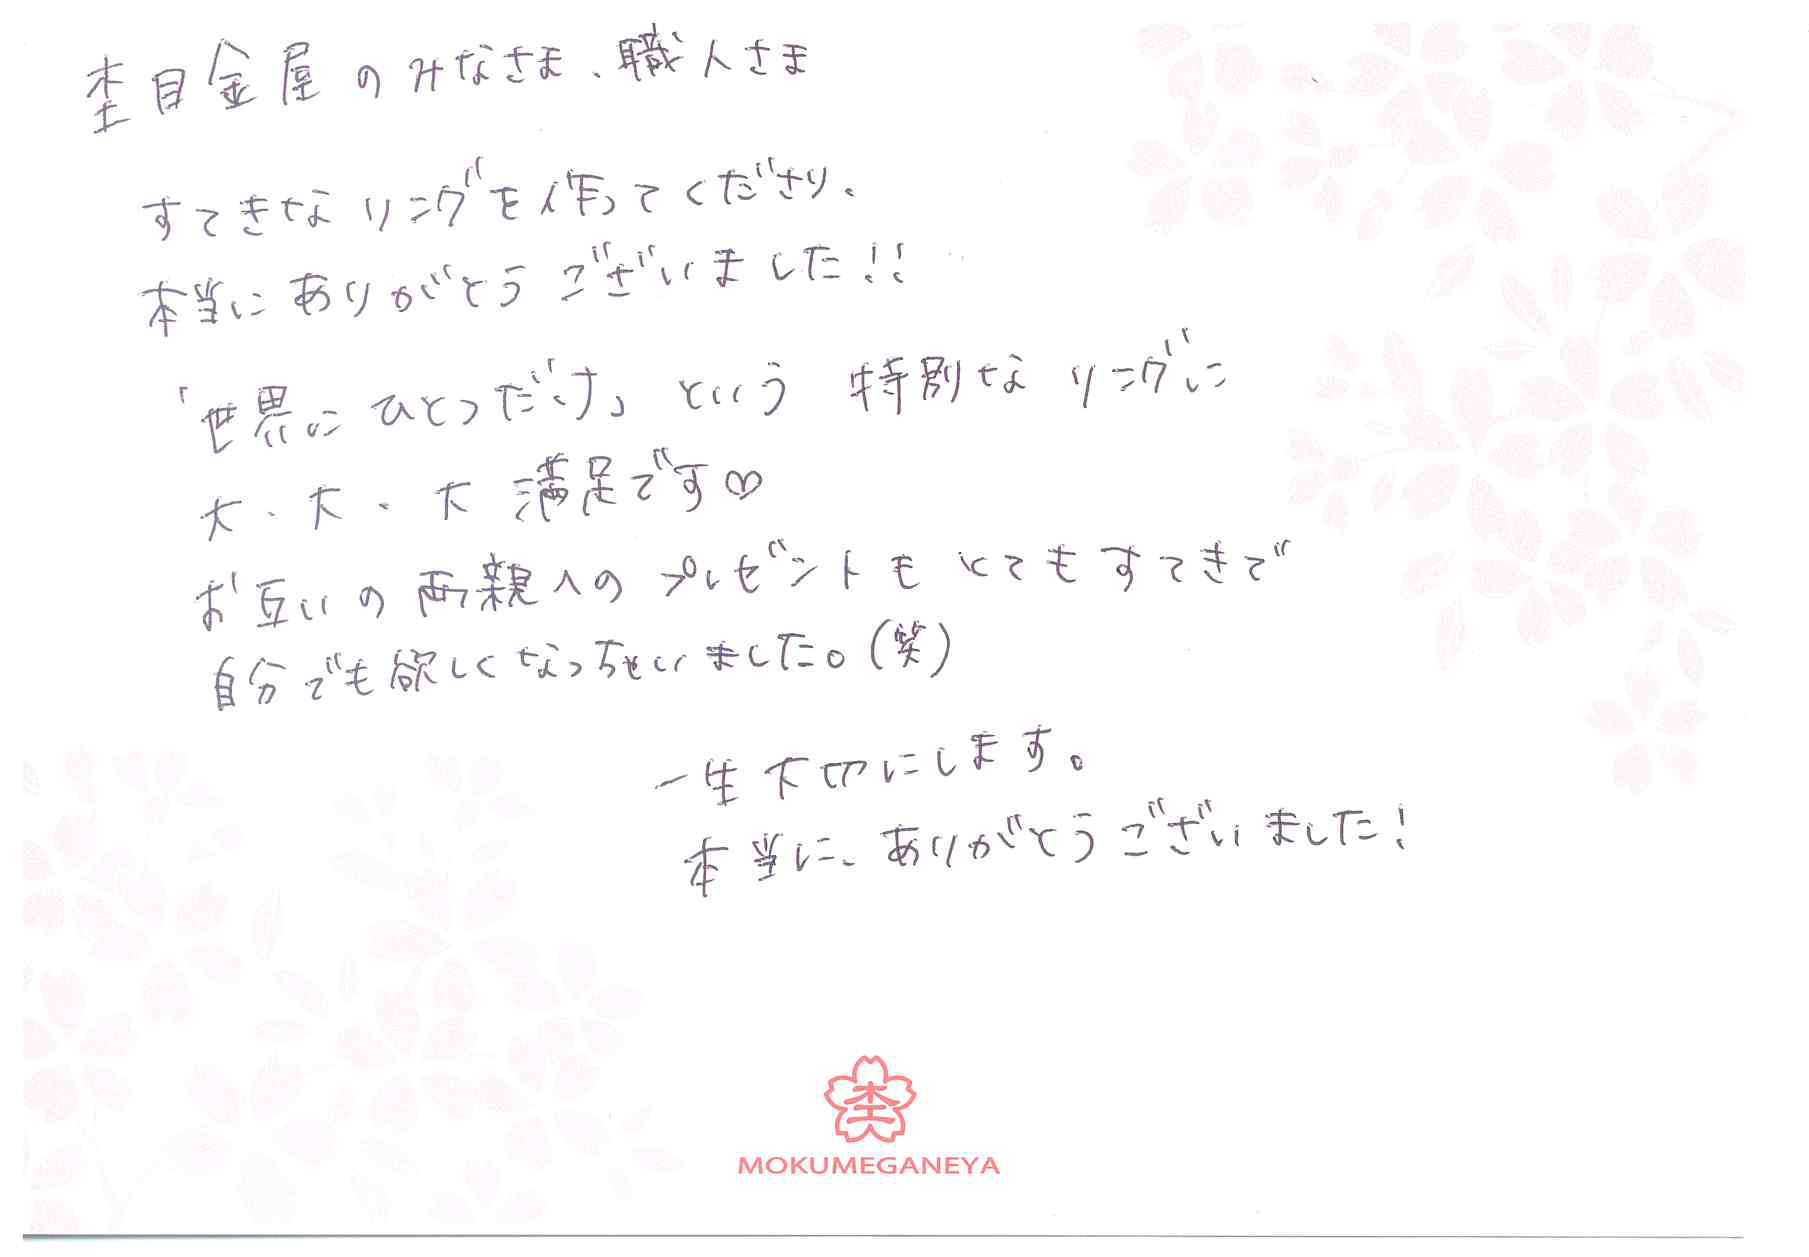 杢目金屋のみなさま、職人さま
すてきなリングを作ってくださり、
本当にありがとうございました!!
「世界にひとつだけ」という特別なリングに
大・大・大満足です♡
お互いの両親へのプレゼントもとてもすてきで
自分でも欲しくなっちゃいました。(笑)
一生大切にします。
本当に、ありがとうございました!
杢
MOKUMEGANEYA